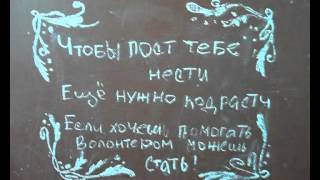 Чтобы пост тебе
нести
Ещё нужно подрасти
Если хочешь помогать
Волонтером можешь
стать!